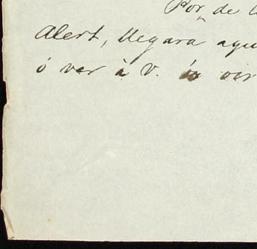 Por de
Alert, llegara aqu
ó ver à V. ó oir